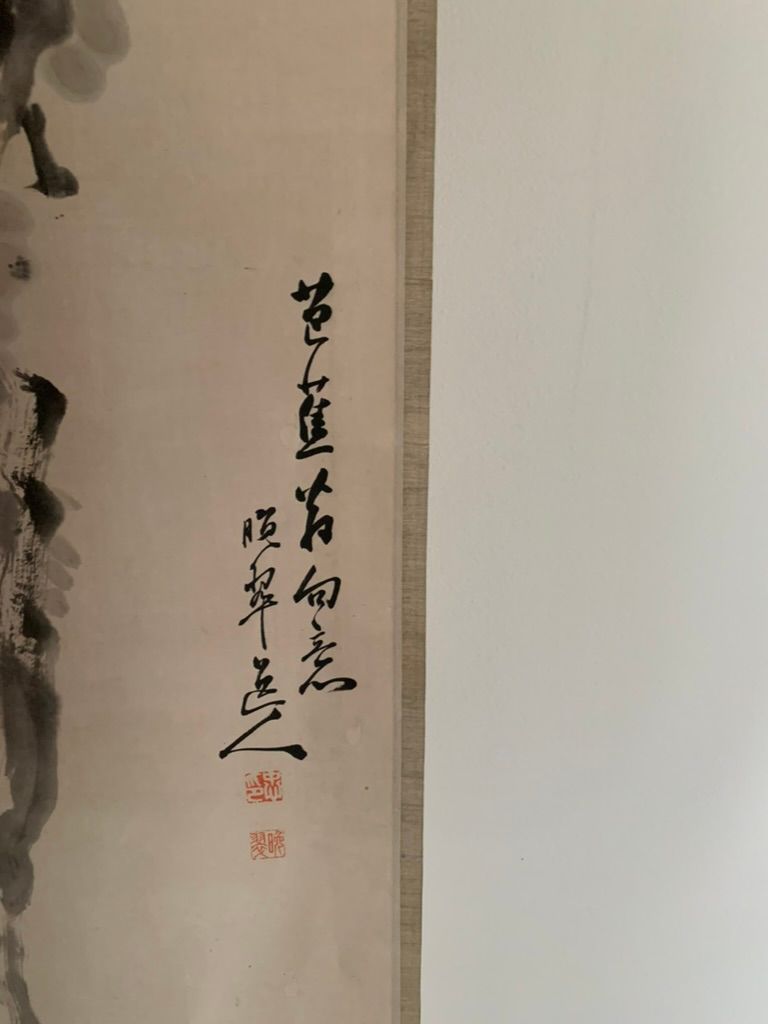 芭蕉翁句意
晩翠道人
晩翠